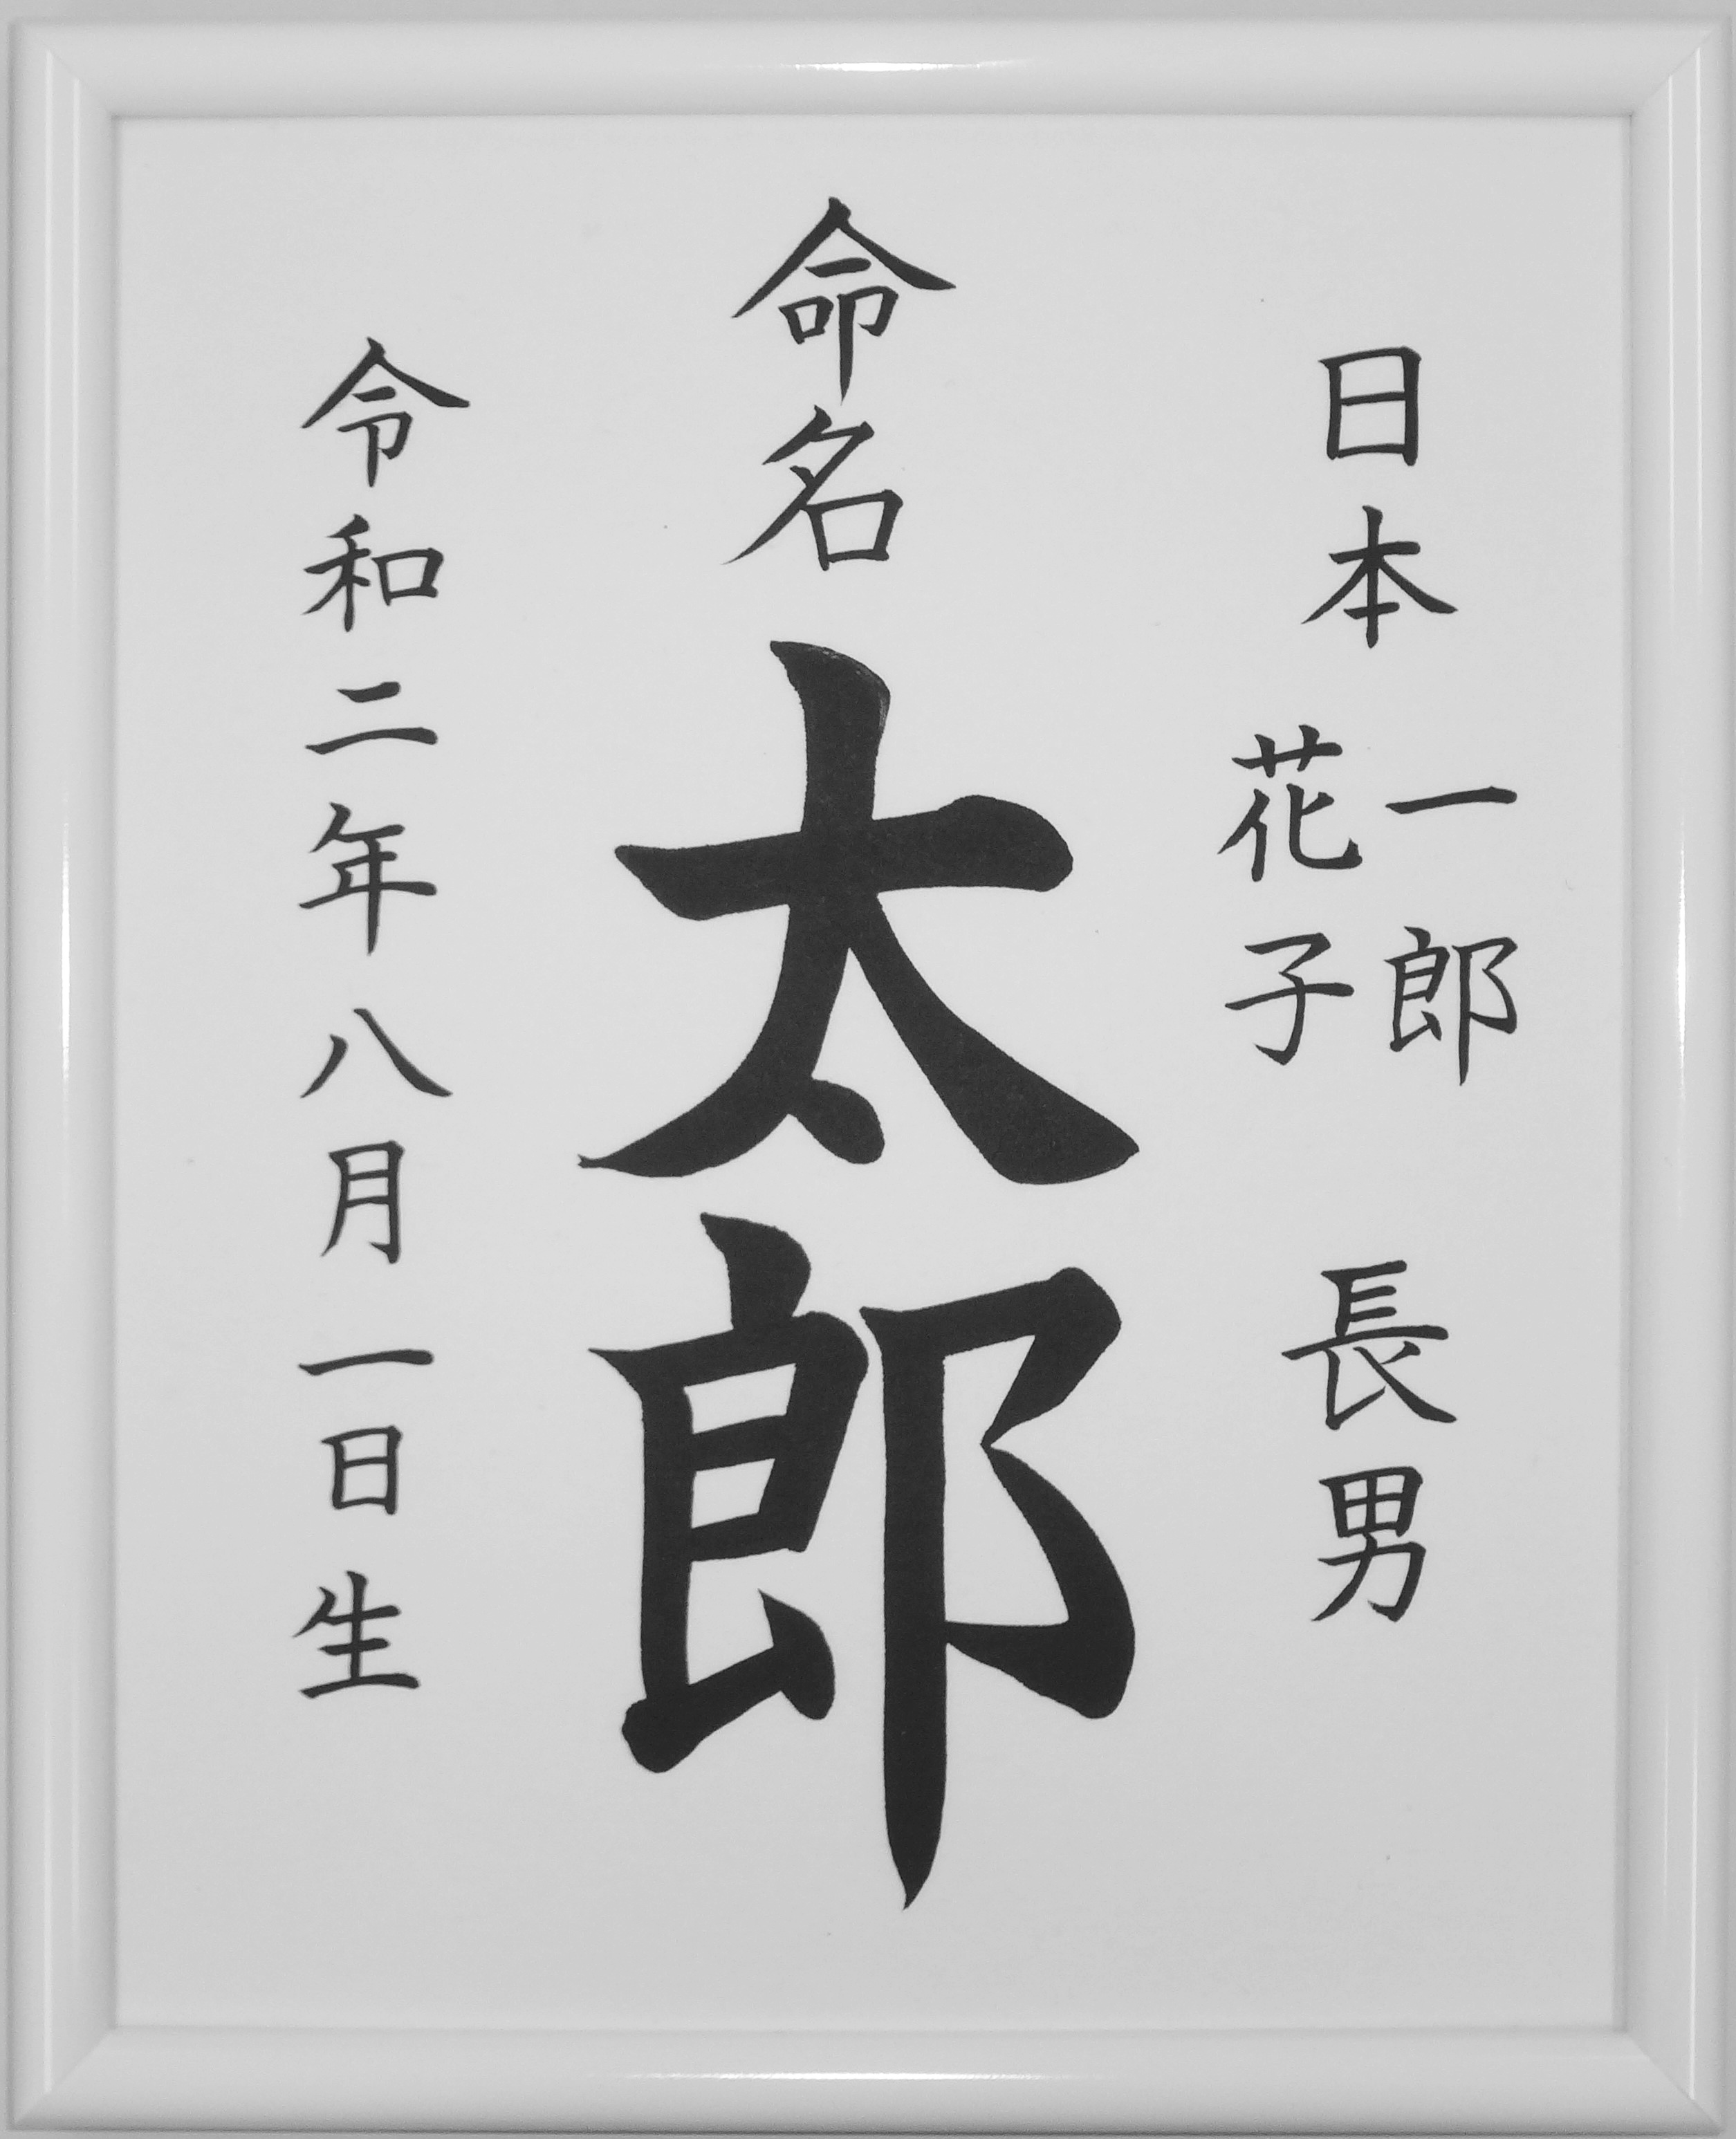 日本 一郎
花子
長男
命名 太郎
令和二年八月一日生